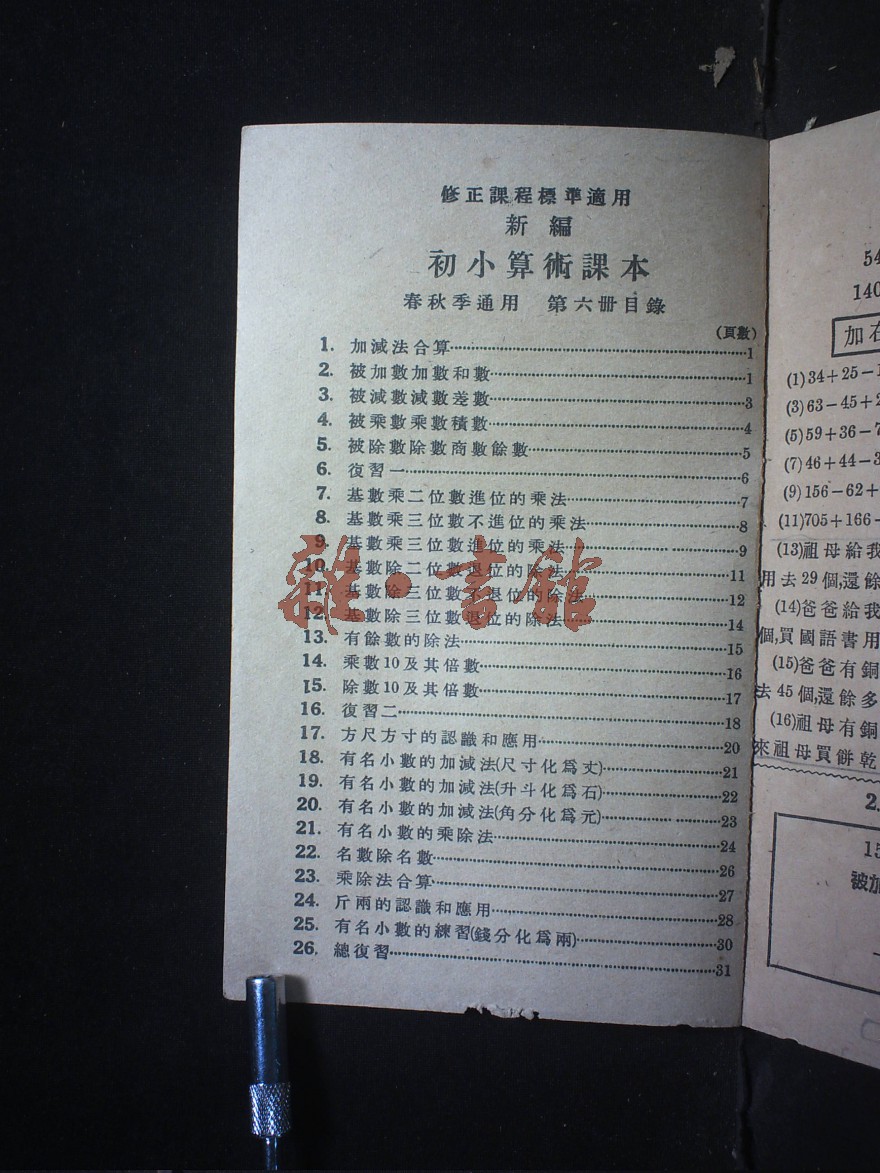 修正課程標準適用
新編
初小算術課本
春秋季通用 第六冊目錄
(頁數)
1. 加減法合算 1
2. 被加數加數和數 1
3. 被減數減數差數 3
4. 被乘數乘數積數 4
5. 被除數除數商數餘數 5
6. 復習一 6
7. 基數乘二位數進位的乘法 7
8. 基數乘三位數不進位的乘法 8
9. 基數乘三位數進位的乘法 9
10. 基數除二位數退位的除法 11
11. 基數除三位數不退位的除法 12
12. 基數除三位數退位的除法 14
13. 有餘數的除法 15
14. 乘數10及其倍數 16
15. 除數10及其倍數 17
16. 復習二 18
17. 方尺方寸的認識和應用 20
18. 有名小數的加減法(尺寸化爲丈) 21
19. 有名小數的加減法(升斗化爲石) 22
20. 有名小數的加減法(角分化爲元) 23
21. 有名小數的乘除法 24
22. 名數除名數 26
23. 乘除法合算 27
24. 斤兩的認識和應用 28
25. 有名小數的練習(錢分化爲兩) 30
26. 總復習 31
雜·書館
54
140
加在
(1)34+25-1
(3)63-45+2
(5)59+36-7
(7)46+44-3
(9)156-62+
(11)705+166-
(13)祖母給我
用去29個,還餘
(14)爸爸給我
個,買國語書用
(15)爸爸有銅
去45個,還餘多
(16)祖母有銅
來祖母買餅乾
2.
15
被加